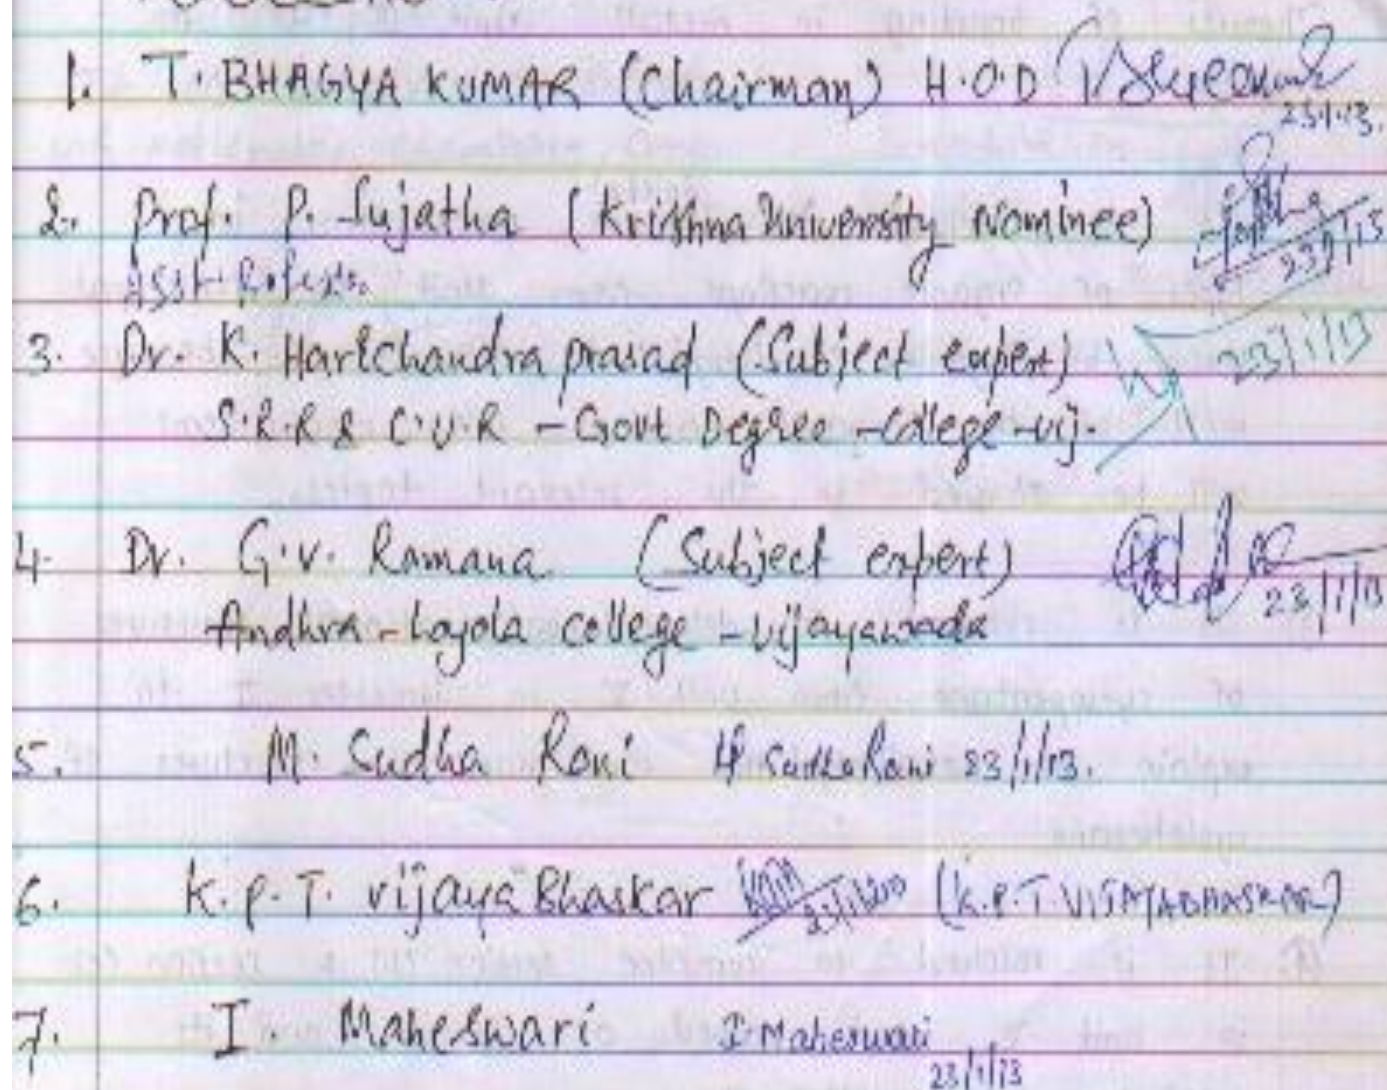 1. T. BHAGYA KUMAR (Chairman) H.O.D
23.1.13.
2. Prof. P. Sujatha (Krishna University Nominee)
23/1/13
Asst.
3. Dr. K. Harichandra prasad (Subject expert) 23/1/13
S.R.R & C.V.R - Govt Degree - College - vij.
4. Dr. G.V. Ramana (Subject expert)
23/1/13
Andhra - Loyola college - vijayawada
5. M. Sudha Rani M. Sudha Rani 23/1/13.
6. K.P.T. vijaya Bhaskar (K.P.T. VIJAYABHASKAR)
7. I. Maheswari I. Maheswari
23/1/13